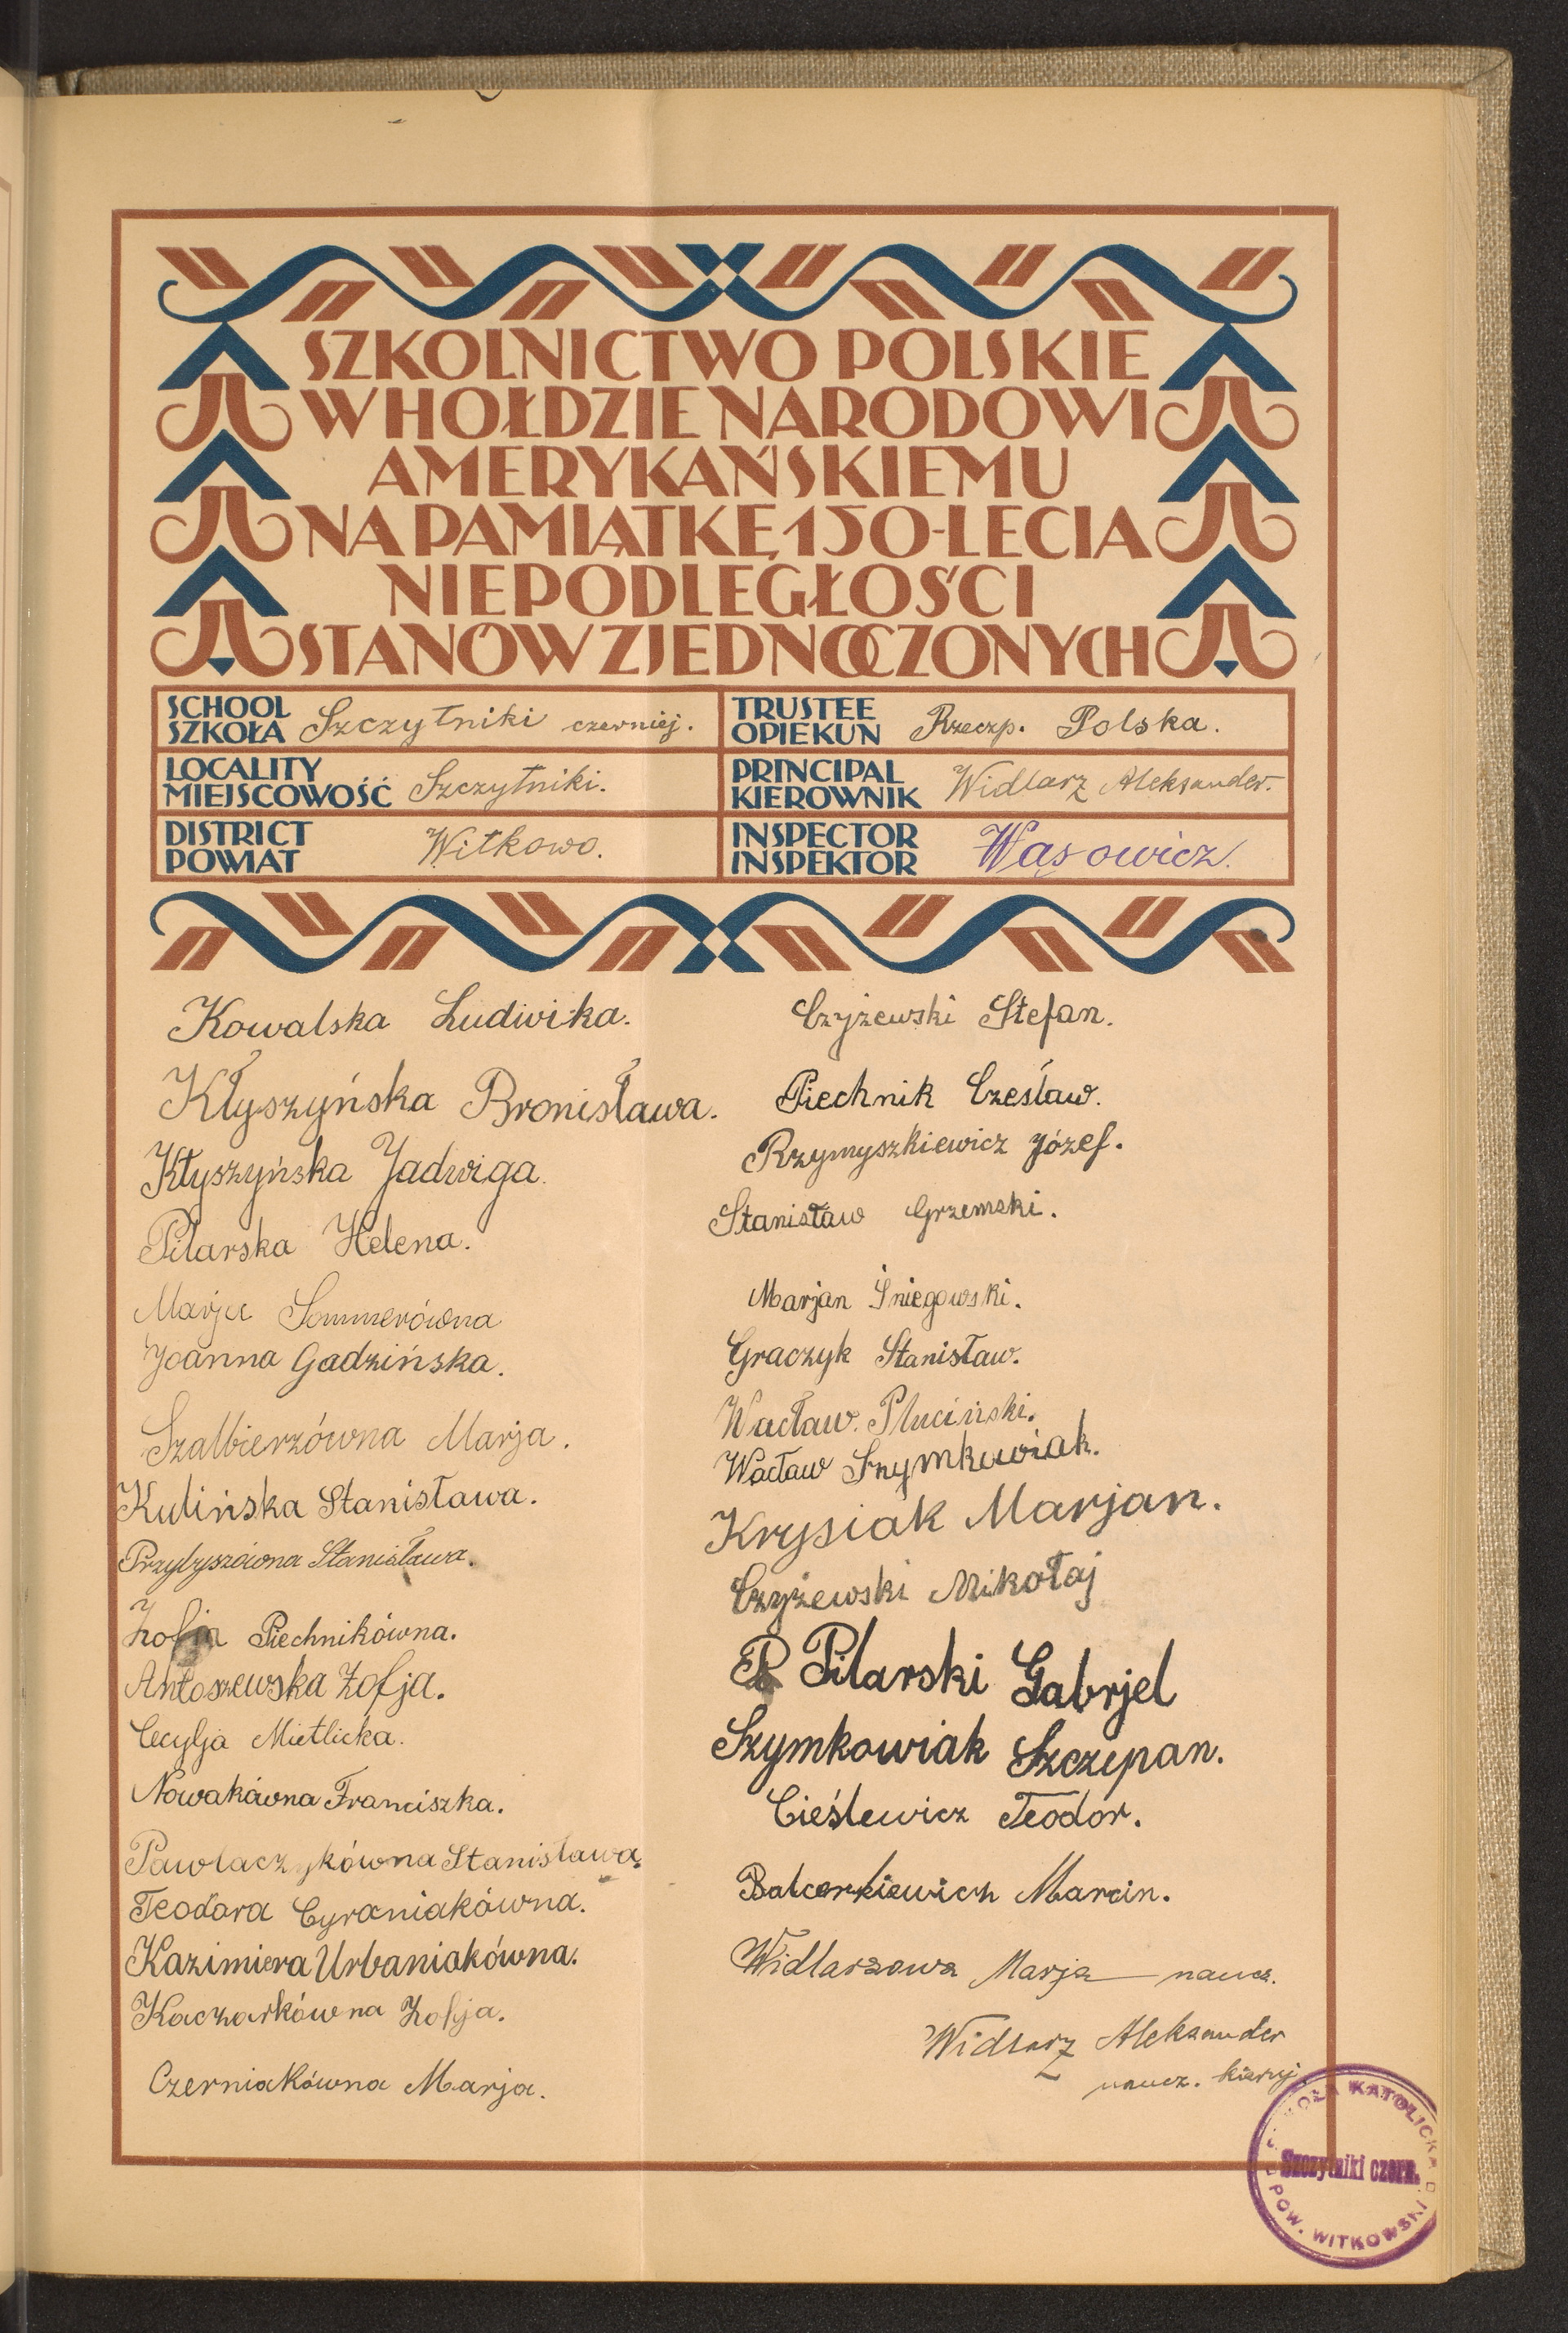 SZKOLNICTWO POLSKIE
W HOŁDZIE NARODOWI
AMERYKAŃSKIEMU
NA PAMIĄTKĘ 150-LECIA
NIEPODLEGŁOŚCI
STANÓW ZJEDNOCZONYCH
SCHOOL
SZKOŁA Szczytniki czerniej.
TRUSTEE
OPIEKUN Rzeczp. Polska.
LOCALITY
MIEJSCOWOŚĆ Szczytniki.
PRINCIPAL
KIEROWNIK Widlarz Aleksander.
DISTRICT
POWIAT Witkowo.
INSPECTOR
INSPEKTOR Wąsowicz.
Kowalska Ludwika.
Kłyszyńska Bronisława.
Kłyszyńska Jadwiga.
Pilarska Helena.
Marja Sommerówna
Joanna Gadzińska.
Szalbierzówna Marja.
Kulińska Stanisława.
Przybyszówna Stanisława.
Zofja Piechnikówna.
Antoszewska Zofja.
Cecylja Mietlicka.
Nowakówna Franciszka.
Pawlaczykówna Stanisława.
Teodora Cyraniakówna.
Kazimiera Urbaniakówna.
Kaczarkówna Zofja.
Czerniakówna Marja.
Czyżewski Stefan.
Piechnik Czesław.
Rzymyszkiewicz Józef.
Stanisław Grzemski.
Marjan Śniegowski.
Graczyk Stanisław.
Wacław Pluciński.
Wacław Szymkowiak.
Krysiak Marjan.
Czyżewski Mikołaj
P Pilarski Gabrjel
Szymkowiak Szczepan.
Cieślewicz Teodor.
Balcerkiewicz Marcin.
Widlarzowa Marja naucz.
Widlarz Aleksander
naucz. kieruj.
SZKOŁA KATOLICKA
Szczytniki czern.
POW. WITKOWSKI